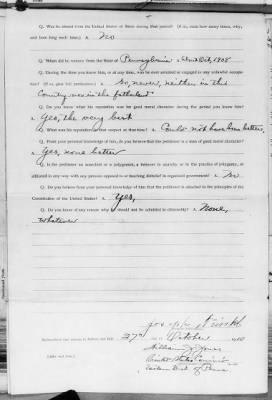 Q. Was he absent from the United States at any time during that period? (If so, state how many times, why,
and how long each time.) A. No
Q. When did he remove from the State of Pennsylvania A. Oct, 1908
Q. During the time you knew him, or at any time, was he ever arrested or engaged in any unlawful occupa-
tion? A. No, never, neither in this
Country nor in the fatherland.
Q. Do you know what his reputation was for good moral character during the period you knew him?
A. Yes, the very best
Q. What was his reputation in that respect at that time? A. Could not have been better,
Q. From your personal knowledge of him, do you believe that the petitioner is a man of good moral character?
A. Yes, none better
Q. Is the petitioner an anarchist or a polygamist, a believer in anarchy or in the practice of polygamy, or
affiliated in any way with any persons opposed to or teaching disbelief in organized government? A. No
Q. Do you believe from your personal knowledge of him that the petitioner is attached to the principles of the
Constitution of the United States? A. Yes,
Q. Do you know of any reason why he should not be admitted to citizenship? A. None,
whatever
Subscribed and sworn to before me this 27th October 1910
William J. Jones
United States Comm'r
Eastern Dist. of Penna